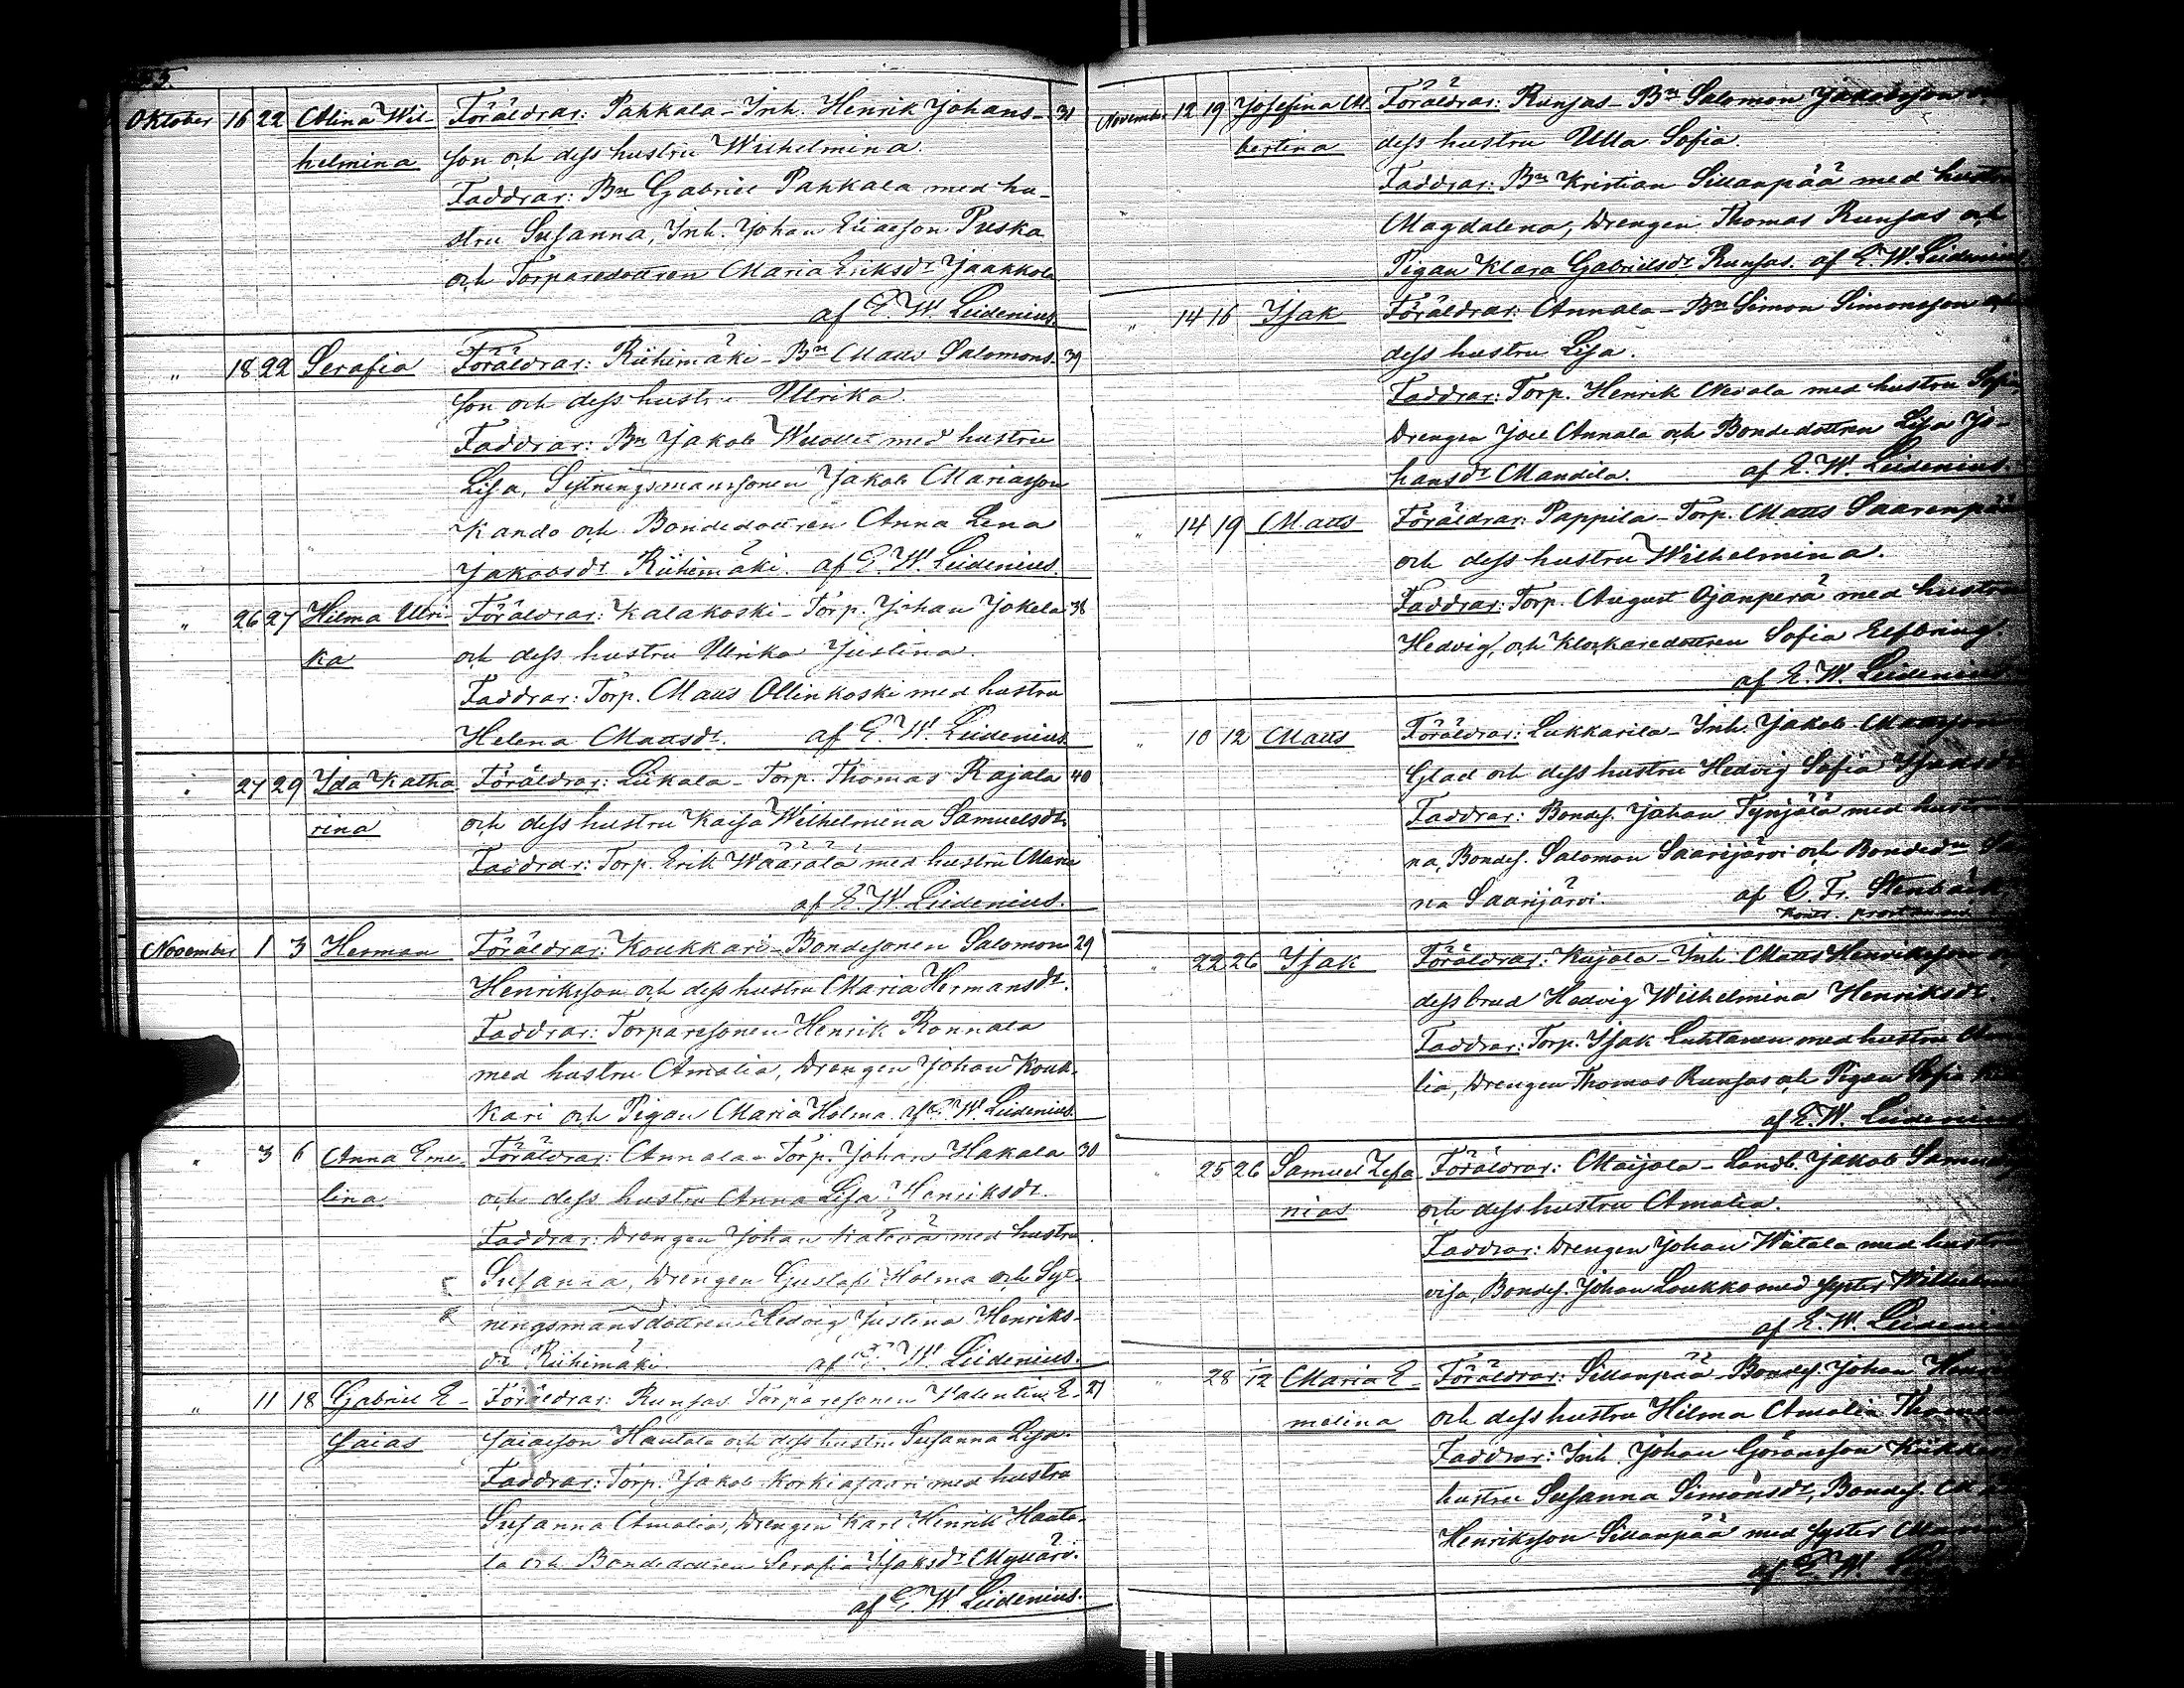 Oktober 16 22 Alina Wil- Föräldrar: Pahkala - Inh. Henrik Johans- 31
helmina son och dess hustru Wilhelmina.
Faddrar: Bn Gabriel Pahkala med hu-
stru Susanna, Inh. Johan Eliasson Puska
och Torparedottren Maria Eriksdr Jaakkola
af E. W. Leidenius.
" 18 22 Serafia Föräldrar: Riihimäki - Bn Matts Salomons- 39
son och dess hustru Ullrika.
Faddrar: Bn Jakob Wuollet med hustru
Lisa, Sytningsmanssonen Jakob Mariasson
Kando och Bondedottren Anna Lena
Jakobsdr Riihimäki. af E. W. Leidenius.
" 26 27 Hilma Ulri- Föräldrar: Kalakoski - Torp. Johan Jokela 38
ka och dess hustru Ulrika Justina.
Faddrar: Torp. Matts Ollinkoski med hustru
Helena Mattsdr. af E. W. Leidenius
" 27 29 Ida Katha Föräldrar: Liikala - Torp. Thomas Rajala 40
rina och dess hustru Kaisa Wilhelmina Samuelsdr.
Faddrar: Torp. Erik Wäärälä med hustru Maria
af E. W. Leidenius.
November 1 3 Herman Föräldrar: Koukkari - Bondesonen Salomon 29
Henriksson och dess hustru Maria Hermansdr.
Faddrar: Torparesonen Henrik Ronnala
med hustru Amalia, Drengen Johan Kouk-
kari och Pigan Maria Holma. af E. W. Leidenius.
" 3 6 Anna Eme- Föräldrar: Annala - Torp. Johan Hakala 30
lina och dess hustru Anna Lisa Henriksdr.
Faddrar: Drengen Johan med hustru
Susanna, Drengen Gustaf Holma och Syt-
ningsmansdottren Hedvig Justina Henriks-
dr Riihimäki. af E. W. Leidenius.
" 11 18 Gabriel E- Föräldrar: Runsas Torparesonen Valentin E- 27
saias saiasson Hautala och dess hustru Susanna Lisa.
Faddrar: Torp. Jakob Korkiasaari med hustru
Susanna Amalia, Drengen Karl Henrik Hauta-
la och Bondedottren Serafia Isaksdr Mylläri.
af E. W. Leidenius.
November 12 19 Josefina Al Föräldrar: Runsas - Bn Salomon Jakobsson
bertina dess hustru Ulla Sofia.
Faddrar: Bn Kristian Sillanpää med hustru
Magdalena, Drengen Thomas Runsas och
Pigan Klara Gabrielsdr Runsas. af E. W. Leidenius
" 14 16 Isak Föräldrar: Annala - Bn Simon Simonsson
dess hustru Lisa.
Faddrar: Torp. Henrik med hustru Sofia,
Drengen Joel Annala och Bondedottren Lisa Jo-
hansdr Mandila. af E. W. Leidenius.
" 14 19 Matts Föräldrar: Pappila - Torp. Matts Saarenpää
och dess hustru Wilhelmina.
Faddrar: Torp. August Ojanperä med hustru
Hedvig, och Klockaredottren Sofia Elfbring.
af E. W. Leidenius.
" 10 12 Matts Föräldrar: Lukkarila - Inh. Jakob Mattsson
Glad och dess hustru Hedvig Sofia Isaksdr
Faddrar: Bondes. Johan Tynjälä med hustru
na, Bondes. Salomon Saarijärvi och Bondedn
na Saarijärvi. af C. Fr. Stenbäck
" 22 26 Isak Föräldrar: Kujala - Inh. Matts Henriksson
dess brud Hedvig Wilhelmina Henriksdr.
Faddrar: Torp. Isak Luhtanen med hustru
lia, Drengen Thomas Runsas och Pigan Sofia
af E. W. Leidenius
" 25 26 Samuel Zefa Föräldrar: Maijala - Landb. Jakob
nias och dess hustru Amalia.
Faddrar: Drengen Johan Wiitala med hustru
visa, Bondes. Johan Loukko med syster
af E. W. Leidenius
" 28 1/12 Maria E- Föräldrar: Sillanpää - Bondes. Johan
melina och dess hustru Hilma Amalia
Faddrar: Inh. Johan Göransson
hustru Susanna Simonsdr, Bondes.
Henriksson Sillanpää med syster
af E. W.